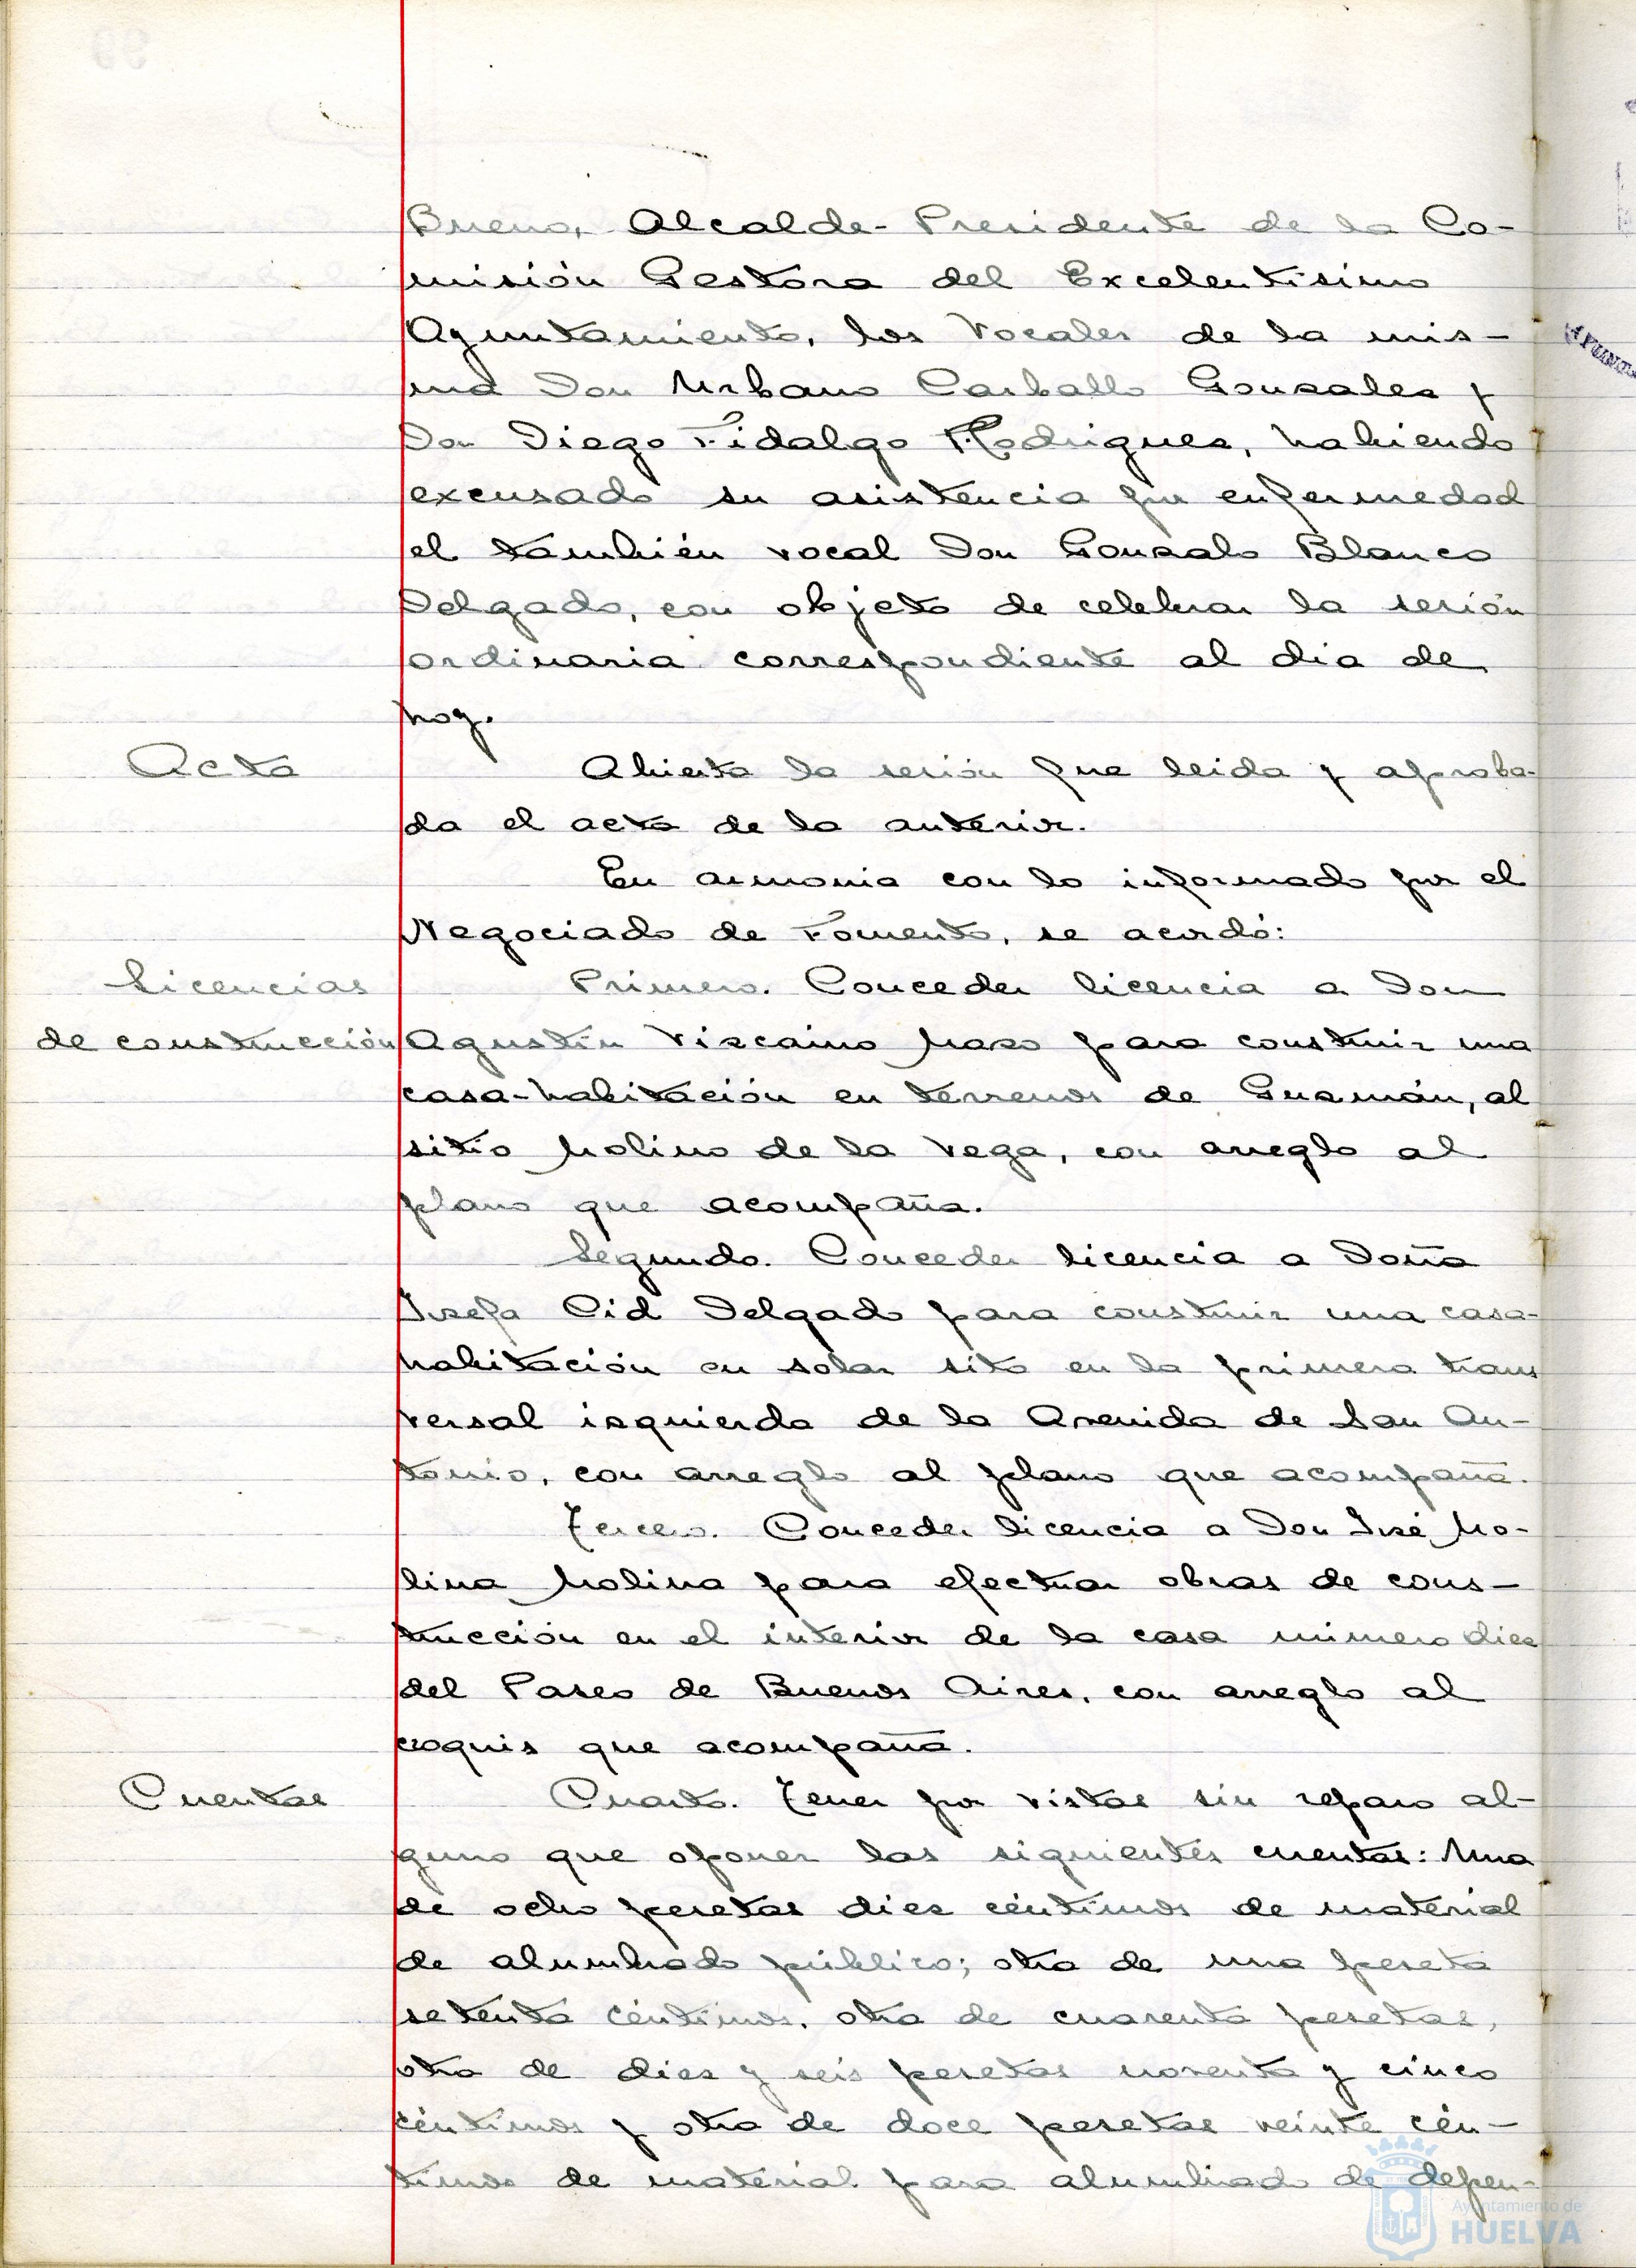 Bueno, Alcalde-Presidente de la Co-
misión Gestora del Excelentísimo
Ayuntamiento, los Vocales de la mis-
ma Don Urbano Carballo Gonzalez y
Don Diego Fidalgo Rodriguez, habiendo
excusado su asistencia por enfermedad
el también vocal Don Gonzalo Blanco
Delgado, con objeto de celebrar la sesión
ordinaria correspondiente al dia de
hoy.
Acta
Abierta la sesión fue leida y aproba-
da el acta de la anterior.
En armonia con lo informado por el
Negociado de Fomento, se acordó:
Licencias
de construcción
Primero. Conceder licencia a Don
Agustín Vizcaino para construir una
casa-habitación en terrenos de Guzmán, al
sitio Molino de la Vega, con arreglo al
plano que acompaña.
Segundo. Conceder licencia a Doña
Josefa Cid Delgado para construir una casa-
habitación en solar sito en la primera trans
versal izquierda de la Avenida de San An-
tonio, con arreglo al plano que acompaña.
Tercero. Conceder licencia a Don José Mo-
lina Molina para efectuar obras de cons-
trucción en el interior de la casa número diez
del Paseo de Buenos Aires, con arreglo al
croquis que acompaña.
Cuentas
Cuarto. Tener por vistas sin reparo al-
guno que oponer las siguientes cuentas: Una
de ocho pesetas diez céntimos de material
de alumbrado público; otra de una peseta
setenta céntimos, otra de cuarenta pesetas,
otra de diez y seis pesetas noventa y cinco
céntimos y otra de doce pesetas veinte cén-
timos de material para alumbrado de depen-
Ayuntamiento de
HUELVA